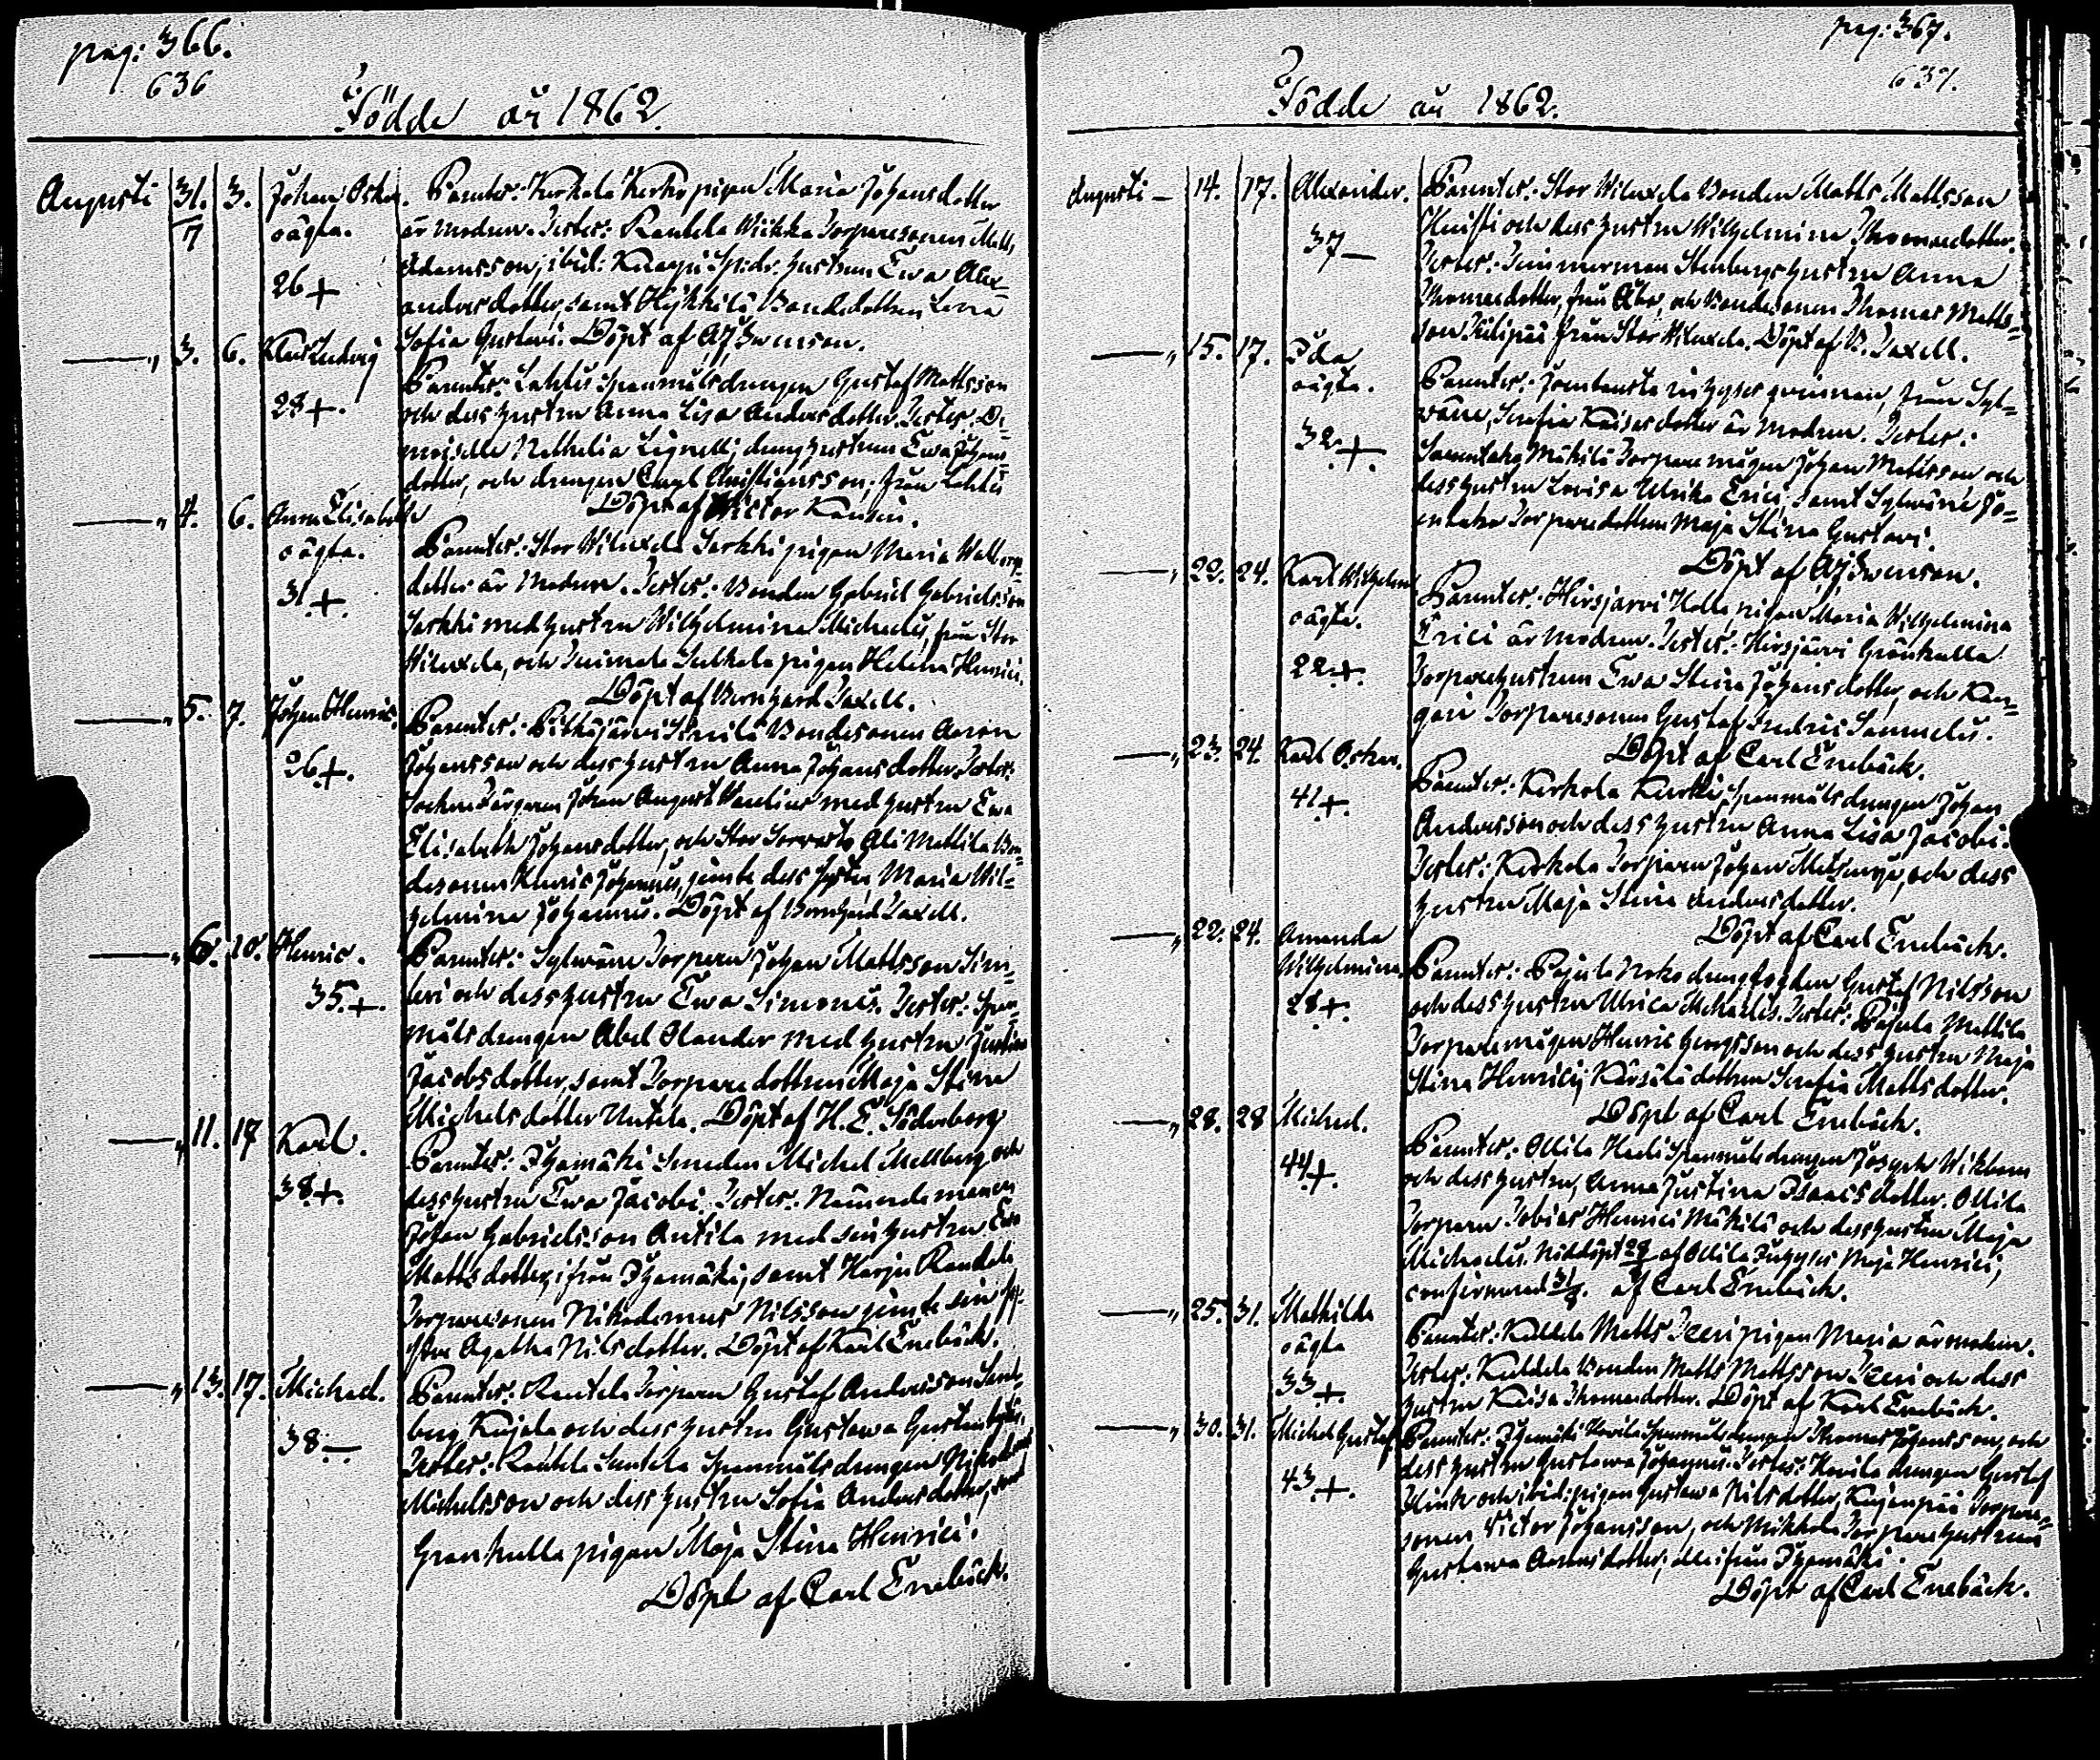 pag: 366.
636
Födde år 1862.
Augusti 31. 3. Johan Oskar. Parentes: Kerkola Kerko pigan Maria Johansdotter
7 oägta. är modren. Testes: Rautela Wickka Torparesonen Matts
Adamsson, ibid: Knaapi Sp:dr. hustrun Ewa Alex-
26+ andersdotter, samt Hykkilä Bondedottren Lovisa
Sofia Gustavi. Döpt af AJ Swenson.
" 3. 6. Klas Ludvig
Parentes: Lahtis Spanmålsdrengen Gustaf Mattsson
28+. och dess hustru Anna Lisa Andersdotter. Testes: De-
moiselle Nathalia Lignell; dreng hustrun Ewa Johans
dotter, och drengen Carl Christiansson, från Lahtis
Döpt af Victor
" 4. 6. Anna Elisabeth
oägta. Parentes: Stor Wiluxela Jerkki pigan Maria
31+. dotter är Modren. Testes: Bonden Gabriel Gabrielsson
Jerkki med hustru Wilhelmina Michaelis, från Stor
Wiluxela, och pigan Helena Henrici.
Döpt af Bernhard Taxell.
" 5. 7. Johan Henric.
Parentes: Pitkäjärvi Bondesonen Aaron
26+. Johansson och dess hustru Anna Johansdotter. Testes:
Sockne Färgaren Johan August med hustru Ewa
Elisabeth Johansdotter, och Stor Ali Mattila Bon-
desonen Henric Johannis, jemte dess syster Maria Wil-
helmina Johannis. Döpt af Bernhard Taxell.
" 6. 10. Henric.
Parentes: Sylwäne Torparen Johan Mattsson
35.+. och dess hustru Ewa Simonis. Testes: Span-
målsdrengen Abel Olander med hustru Justina
Jacobsdotter, samt Torparedottren Maja Stina
Michelsdotter Untila. Döpt af H. E. Söderberg
" 11. 17 Karl.
Parentes: Ihamäki Smeden Michel Mellberg och
38+. dess hustru Ewa Jacobi. Testes: Nämndemannen
Johan Gabrielsson Antila med sin hustru Ewa
Mattsdotter, ifrån Ihamäki, samt Harju Rautela
Torparesonen Nikodemus Nilsson jemte sin sy-
ster Agatha Nilsdotter. Döpt af Karl Enebäck.
" 13. 17. Michael. Parentes: Rautela Torparen Gustaf Andersson
berg Kujala och dess hustru Gustawa
38— Testes: Rautela Spanmålsdrengen
Michelsson och dess hustru Sofia Andersdotter, samt
Grankulla pigan Maja Stina Henrici.
Döpt af Carl Enebäck.
pag: 367.
637.
Födde år 1862.
Augusti — 14. 17. Alexander. Parentes: Stor Wiluxela Bonden Matts Mattsson
och dess hustru Wilhelmina Thomasdotter.
37— Testes: Timmerman Stenbergs hustru Anna
Thomasdotter, från Åbo, och Bondesonen Thomas Matts-
son från Stor Wiluxela. Döpt af B. Taxell.
" 15. 17. Ida
oägta. Parentes: inhyses qvinnan, från Syl-
wäne, Serafia Kaisasdotter är Modren. Testes:
32.+. Mäkilä Torparemågen Johan Mattsson och
dess hustru Lovisa Ulrika Erici, samt Sylwäne
Torparedottren Maja Stina Gustavi.
Döpt af AJ Swenson.
" 22. 24. Karl Wilhelm
oägta. Parentes: Hirsjärvi Kolla pigan Maria Wilhelmina
Erici är modren. Testes: Hirsjärvi Grönkulla
22+. Torparehustrun Ewa Stina Johansdotter, och
Torparesonen Gustaf Fredric Samuelis.
Döpt af Carl Enebäck.
" 23. 24. Karl Oskar.
Parentes: Kerkola Kurki Spanmålsdrengen Johan
41+ Andersson och dess hustru Anna Lisa Jacobi.
Testes: Kerkola Torparen Johan Metsänoja, och dess
hustru Maja Stina Andersdotter.
Döpt af Carl Enebäck.
" 22. 24. Amanda
Wilhelmina. Parentes: Pajula Noko drengfogden Gustaf Nilsson
28+. och dess hustru Ulrica Michaelis. Testes: Pajula Mattila
Torparemågen Henric Georgsson och dess hustru Maja
Stina Henrici; dottren Serafia Mattsdotter.
Döpt af Carl Enebäck.
" 28. 28 Michael.
Parentes: Ollila Heeli Spanmålsdrengen Joseph Wikbom
44+. och dess hustru, Anna Justina Isaacsdotter. Ollila
Torparen Tobias Henrici Mäkilä och dess hustru Maja
Michaelis. Nöddöpt 28/8 af Ollila Maja Henrici,
confirmerad 31/8 af Carl Enebäck.
" 25. 31. Mathilda
oägta Parentes: Kuldela Matts Iceri pigan Maria är modren.
33+ Testes: Kuldela Bonden Matts Mattsson Iceri och dess
hustru Kaisa Thomasdotter. Döpt af Karl Enebäck.
" 30. 31. Michel Gustaf Parentes: Ihamäki Spanmålsdrengen Thomas Johansson, och
dess hustru Gustawa Johannis. Testes: drengen Gustaf
43.+. och ibid: pigan Gustawa Nilsdotter, Kujanpää Torpare-
sonen Victor Johansson, och Mikkola Torparehustrun
Gustawa Aaronsdotter; alla ifrån Ihamäki.
Döpt af Carl Enebäck.